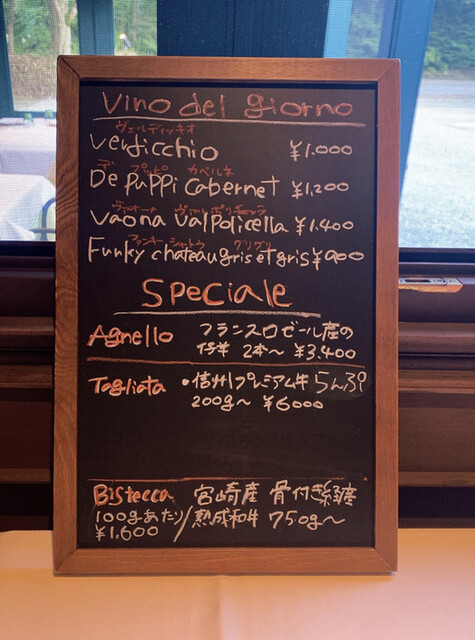 Vino del giorno
ヴェルディッキオ
Verdicchio ¥1.000
デ プッピ カベルネ
De Puppi Cabernet ¥1,200
ヴァオーナ ヴァルポリチェッラ
Vaona Valpolicella ¥1.400
ファンキー シャトウ グリグリ
Funky chateau gris et gris ¥900
Speciale
Agnello フランスロゼール産の
仔羊 2本〜 ¥3.400
Tagliata ・信州プレミアム牛 らんぷ
200g〜 ¥6000
Bistecca 宮崎産 骨付き経産
100gあたり/熟成和牛 750g〜
¥1,600